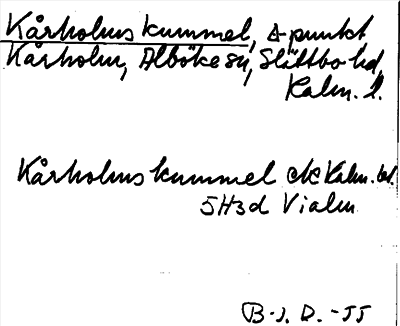 Kårholms kummel, Δ punkt
Kårholm, Alböke sn, Slättbo hd,
Kalm. l.
Kårholms kummel ek Kalm. bl.
5H3d Vialm
B-J. D. -55